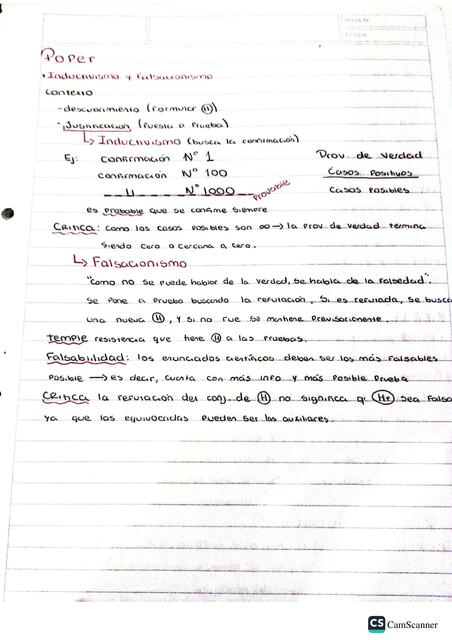 Poper
• Inductivismo y Falsacionismo
Contexto
- descubrimiento (Formular Ⓗ)
- Justificación (Puesta a Prueba)
↳ Inductivismo (busca la confirmación)
Ej: confirmación N° 1 Prov. de verdad
confirmación N° 100 Casos Positivos
_ _ 11 _ _ _ N° 1000 Probable Casos Posibles
es probable que se confirme siempre
Critica: como los casos posibles son ∞ → la prov. de verdad termina
siendo cero o cercana a cero.
↳ Falsacionismo
"Como no se puede hablar de la verdad, se habla de la falsedad".
Se pone a prueba buscando la refutación. Si es refutada, se busca
una nueva Ⓗ, y si no fue se mantiene Provisoriamente.
Temple resistencia que tiene Ⓗ a las pruebas.
Falsabilidad: los enunciados científicos deben ser los más falsables
Posible → es decir, cuenta con más info y más posible Prueba
Critica la refutación del conj. de Ⓗ no significa q' (Hf) sea Falsa
ya que las equivocadas pueden ser las auxiliares.
CS CamScanner